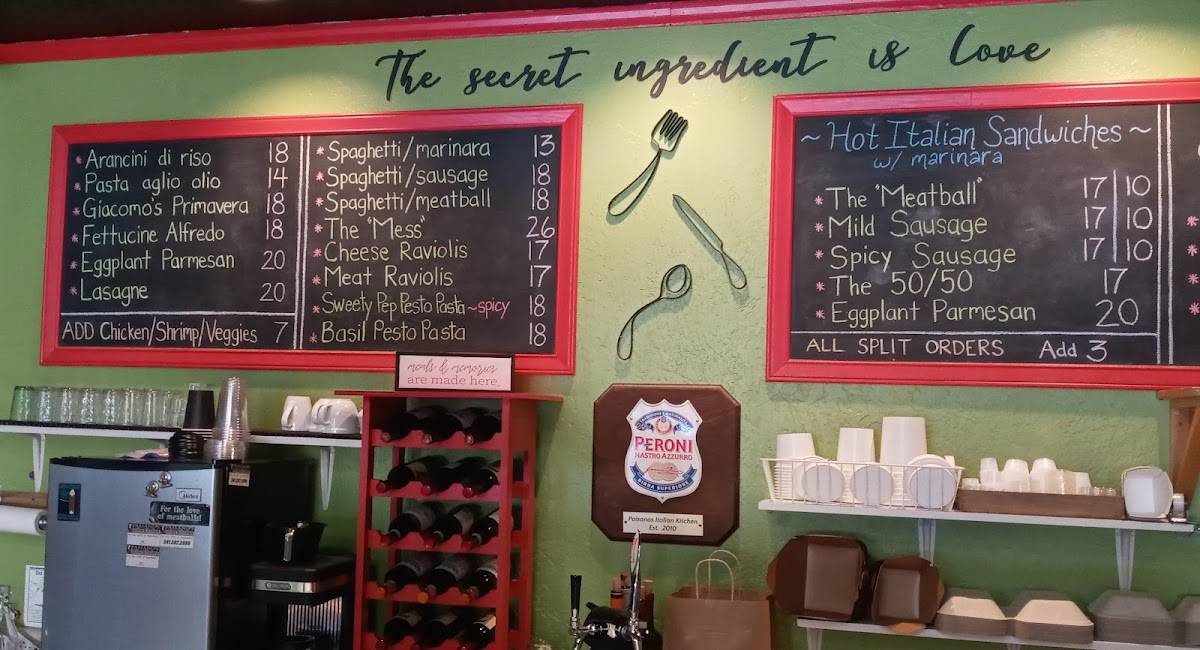 The secret ingredient is love
* Arancini di riso 18
* Pasta aglio olio 14
* Giacomo's Primavera 18
* Fettucine Alfredo 18
* Eggplant Parmesan 20
* Lasagne 20
ADD Chicken/Shrimp/Veggies 7
* Spaghetti/marinara 13
* Spaghetti/sausage 18
* Spaghetti/meatball 18
* The "Mess" 26
* Cheese Raviolis 17
* Meat Raviolis 17
* Sweety Pep Pesto Pasta ~spicy 18
* Basil Pesto Pasta 18
~ Hot Italian Sandwiches ~
w/ marinara
* The "Meatball" 17|10
* Mild Sausage 17|10
* Spicy Sausage 17|10
* The 50/50 17
* Eggplant Parmesan 20
ALL SPLIT ORDERS Add 3
meals & memories
are made here
PERONI
NASTRO AZZURRO
BIRRA SUPERIORE
Paisanos Italian Kitchen
Est. 2010
Midea
For the love
of meatballs!